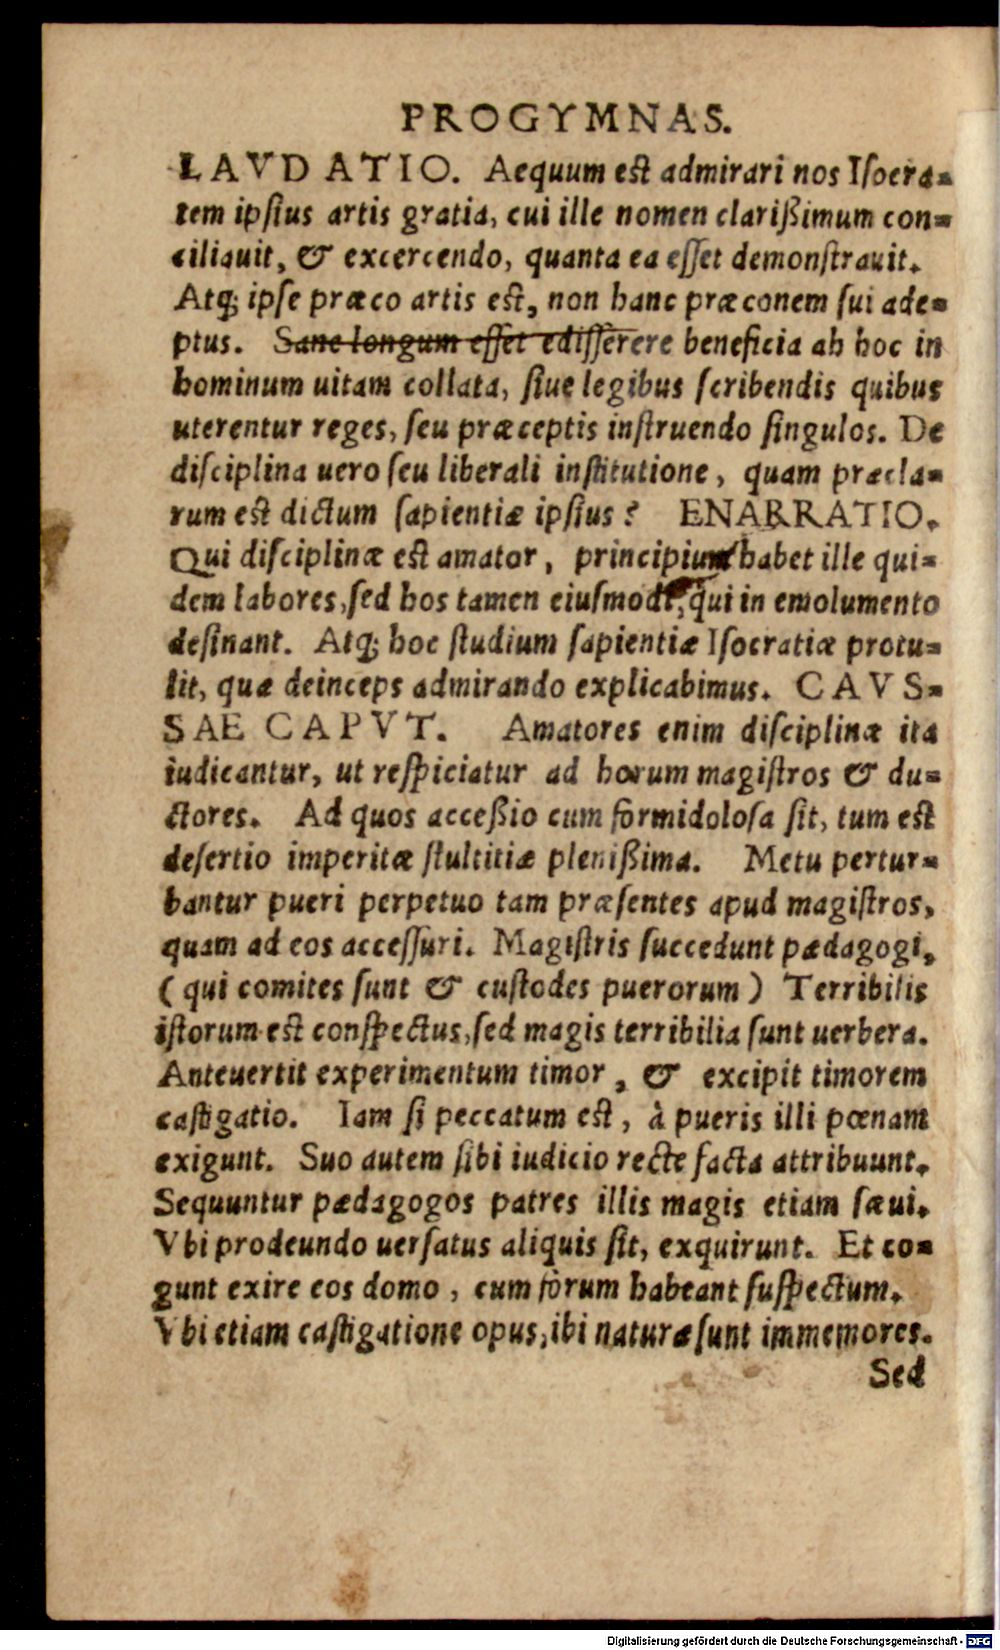 PROGYMNAS.
LAVDATIO. Aequum est admirari nos Isocra-
tem ipsius artis gratia, cui ille nomen clarißimum con-
ciliauit, & excercendo, quanta ea esset demonstrauit.
Atq; ipse præco artis est, non hanc præconem sui ade-
ptus. Sane longum esset edisserere beneficia ab hoc in
hominum uitam collata, siue legibus scribendis quibus
uterentur reges, seu præceptis instruendo singulos. De
disciplina uero seu liberali institutione, quam præcla-
rum est dictum sapientiæ ipsius? ENARRATIO.
Qui disciplinæ est amator, principium habet ille qui-
dem labores, sed hos tamen eiusmodi, qui in emolumento
desinant. Atq; hoc studium sapientiæ Isocratiæ protu-
lit, quæ deinceps admirando explicabimus. CAVS-
SAE CAPVT. Amatores enim disciplinæ ita
iudicantur, ut respiciatur ad horum magistros & du-
ctores. Ad quos acceßio cum formidolosa sit, tum est
desertio imperitæ stultitiæ plenißima. Metu pertur-
bantur pueri perpetuo tam præsentes apud magistros,
quam ad eos accessuri. Magistris succedunt pædagogi,
(qui comites sunt & custodes puerorum) Terribilis
istorum est conspectus, sed magis terribilia sunt uerbera.
Anteuertit experimentum timor, & excipit timorem
castigatio. Iam si peccatum est, à pueris illi pœnam
exigunt. Suo autem sibi iudicio recte facta attribuunt.
Sequuntur pædagogos patres illis magis etiam sæui.
Vbi prodeundo uersatus aliquis sit, exquirunt. Et co-
gunt exire eos domo, cum forum habeant suspectum.
Vbi etiam castigatione opus, ibi naturæ sunt immemores.
Sed
Digitalisierung gefördert durch die Deutsche Forschungsgemeinschaft - DFG